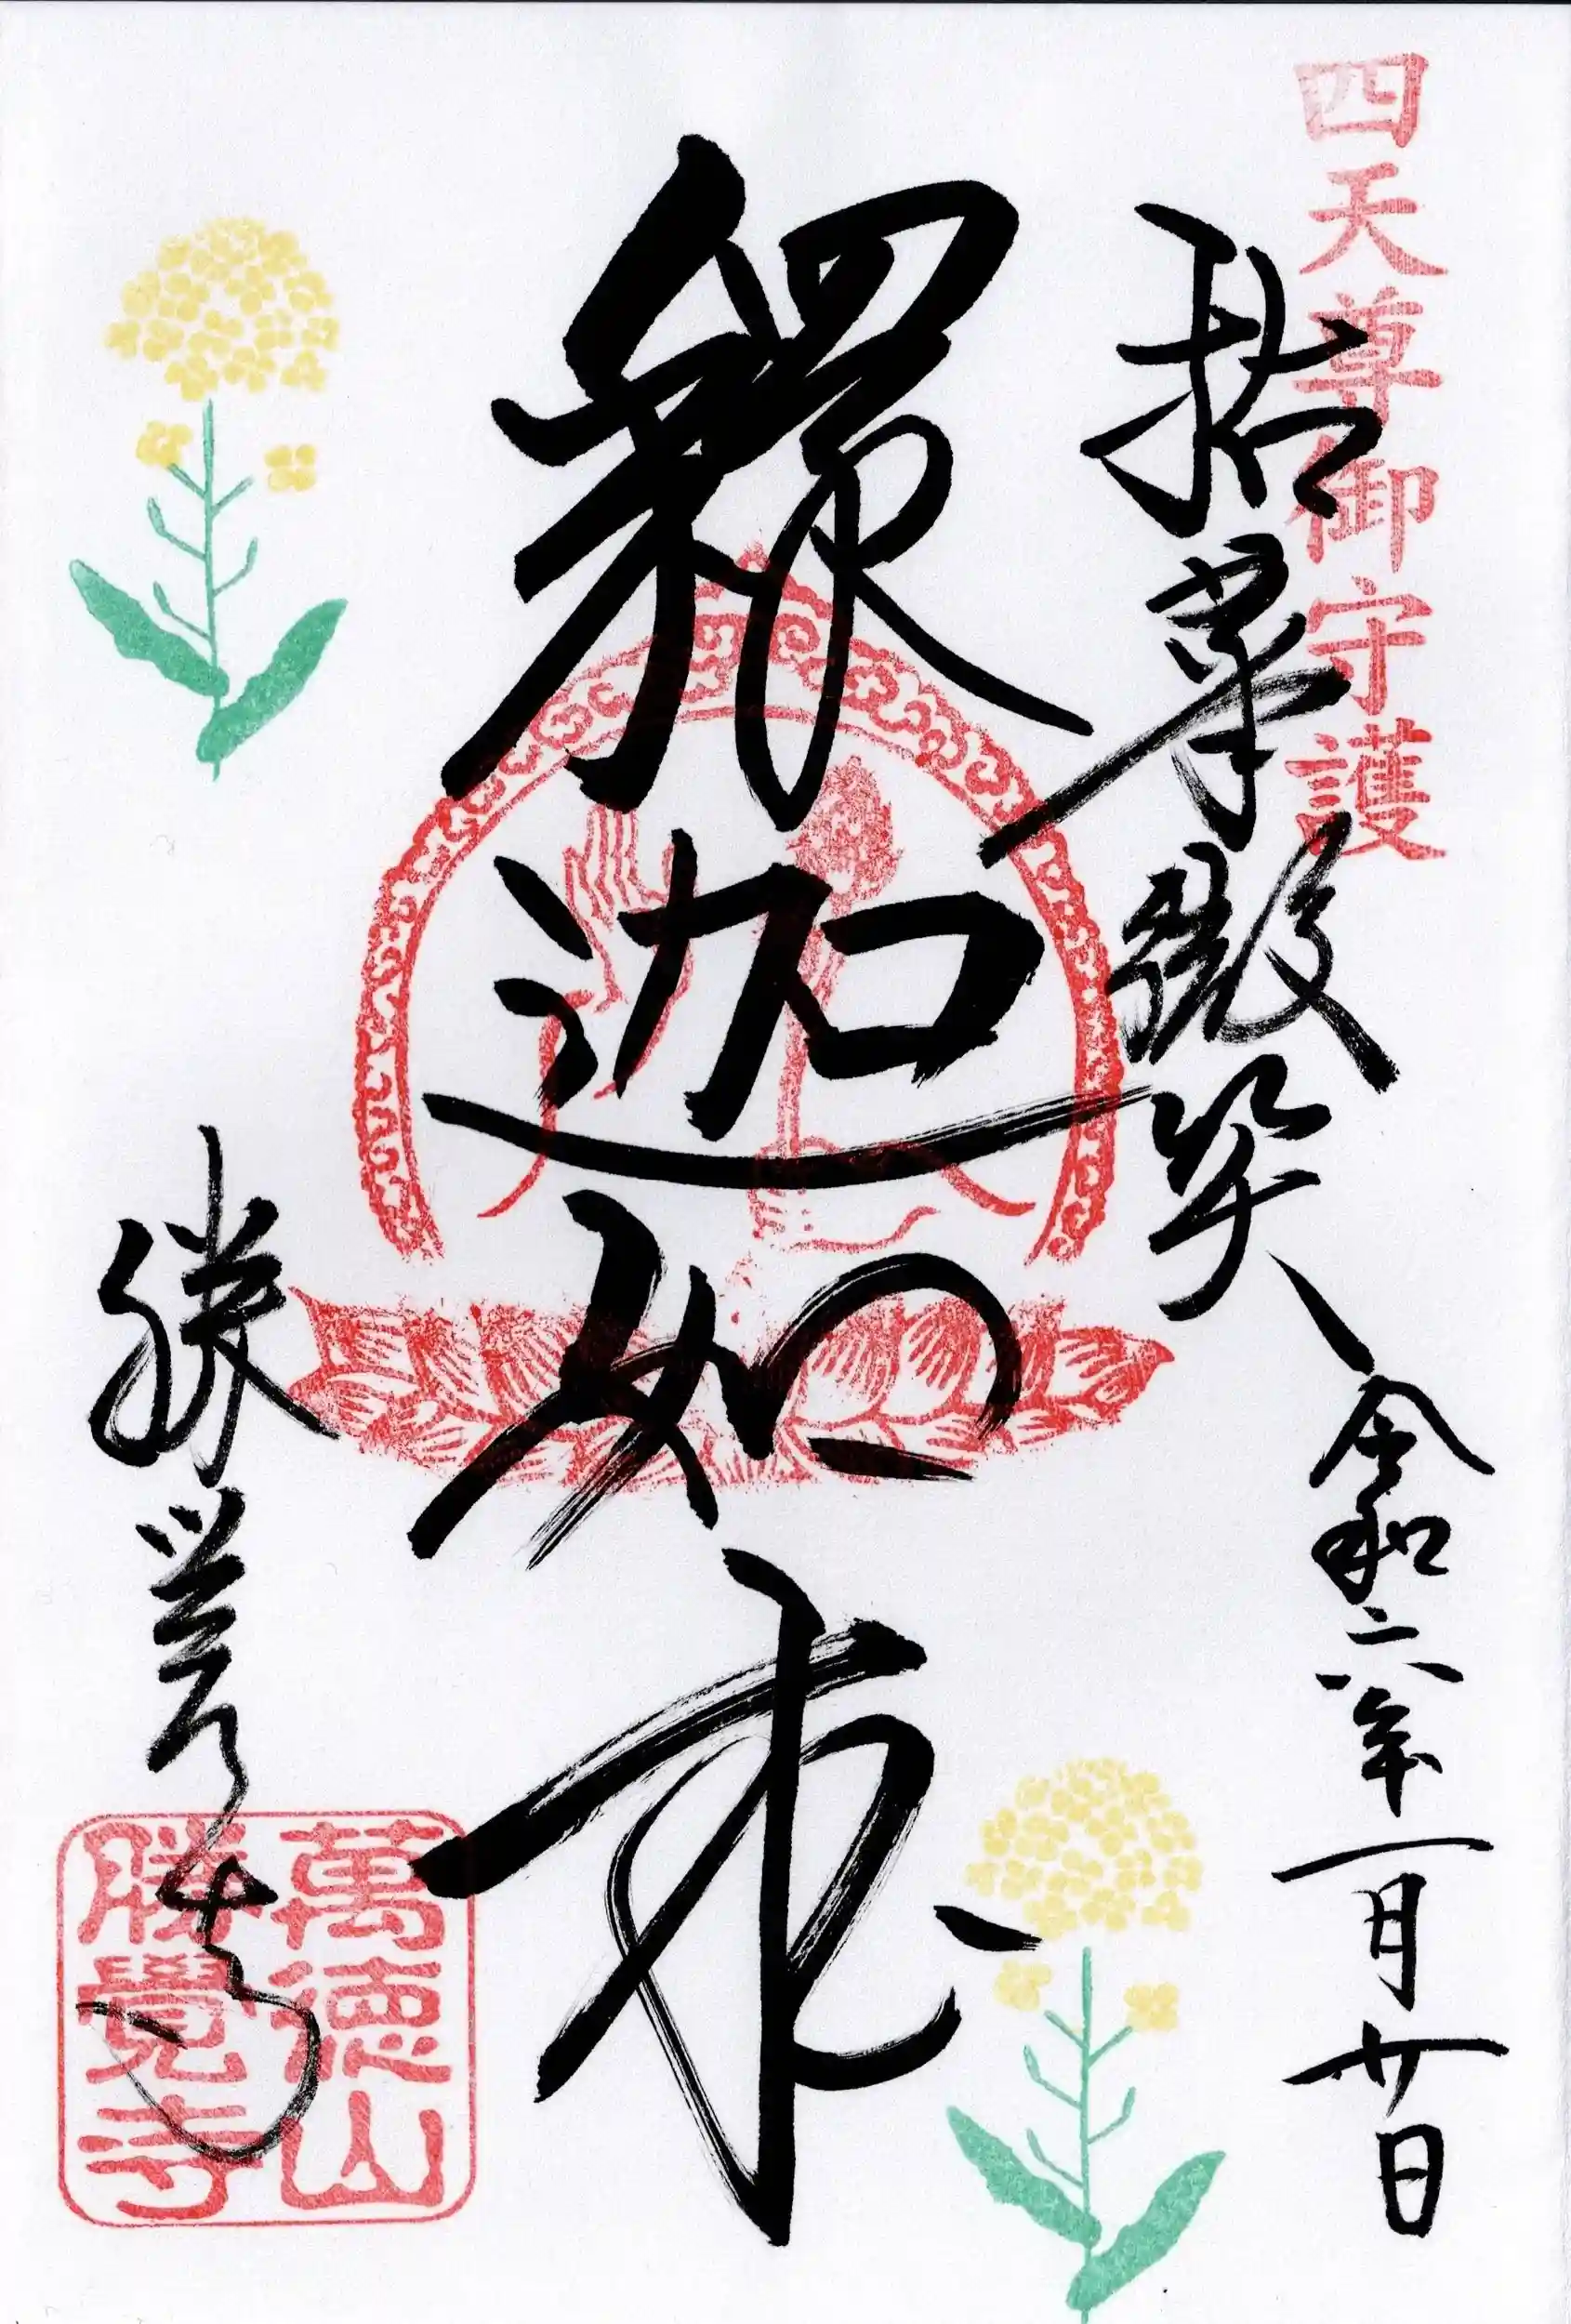 四天尊御守護
拈華微笑 令和六年一月廿日
釋迦如来
勝覺寺
萬徳山
勝覺寺